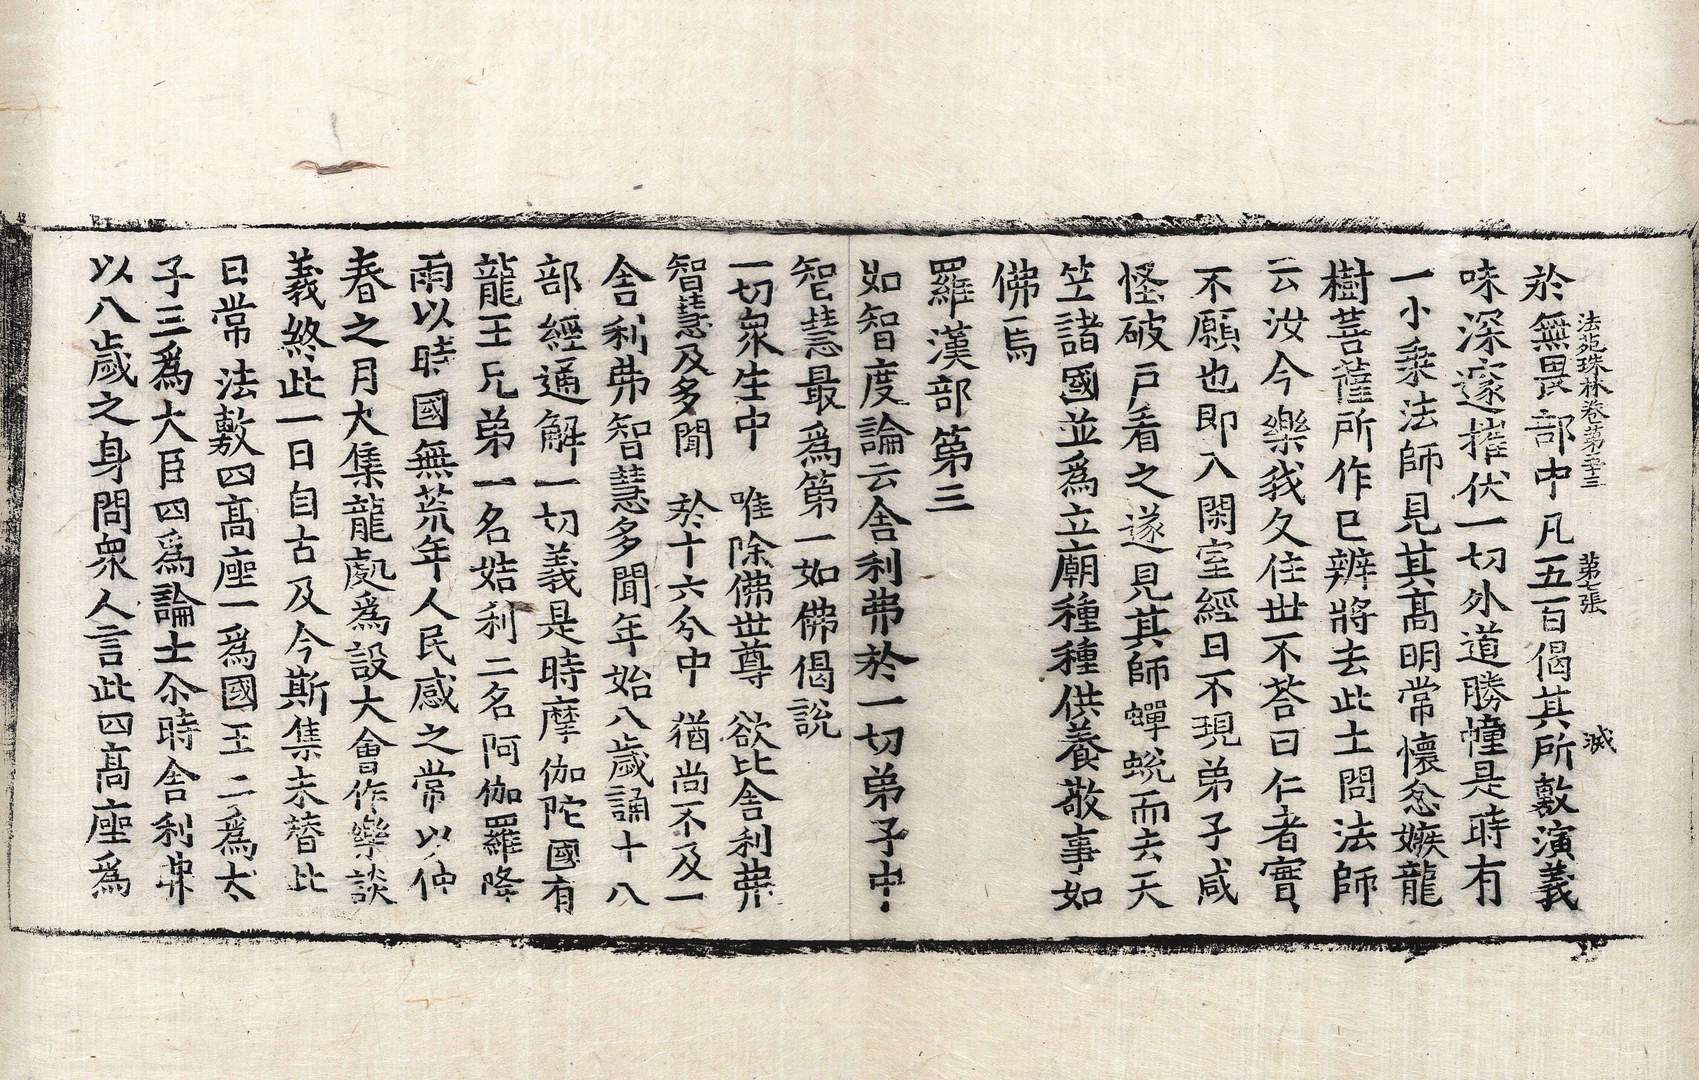 法苑珠林卷第五十三　第七張　滅
於無畏部中凡五百偈其所敷演義
味深邃摧伏一切外道勝幢是時有
一小乗法師見其髙明常懷忿嫉龍
樹菩薩所作已辨將去此土問法師
云汝今樂我久住世不荅曰仁者實
不願也即入閑室經日不現弟子咸
怪破戸看之遂見其師蟬蛻而去天
笁諸國並為立廟種種供養敬事如
佛焉
羅漢部第三
如智度論云舍利弗於一切弟子中
智慧最為第一如佛偈説
一切衆生中　唯除佛世尊　欲比舍利弗
智慧及多聞　於十六分中　猶尚不及一
舍利弗智慧多聞年始八歲誦十八
部經通解一切義是時摩伽陀國有
龍王兄弟一名姞利二名阿伽羅降
雨以時國無荒年人民感之常以仲
春之月大集龍處為設大會作樂談
義終此一日自古及今斯集未替此
日常法敷四髙座一為國王二為太
子三為大臣四為論士尒時舍利弗
以八歲之身問衆人言此四髙座為